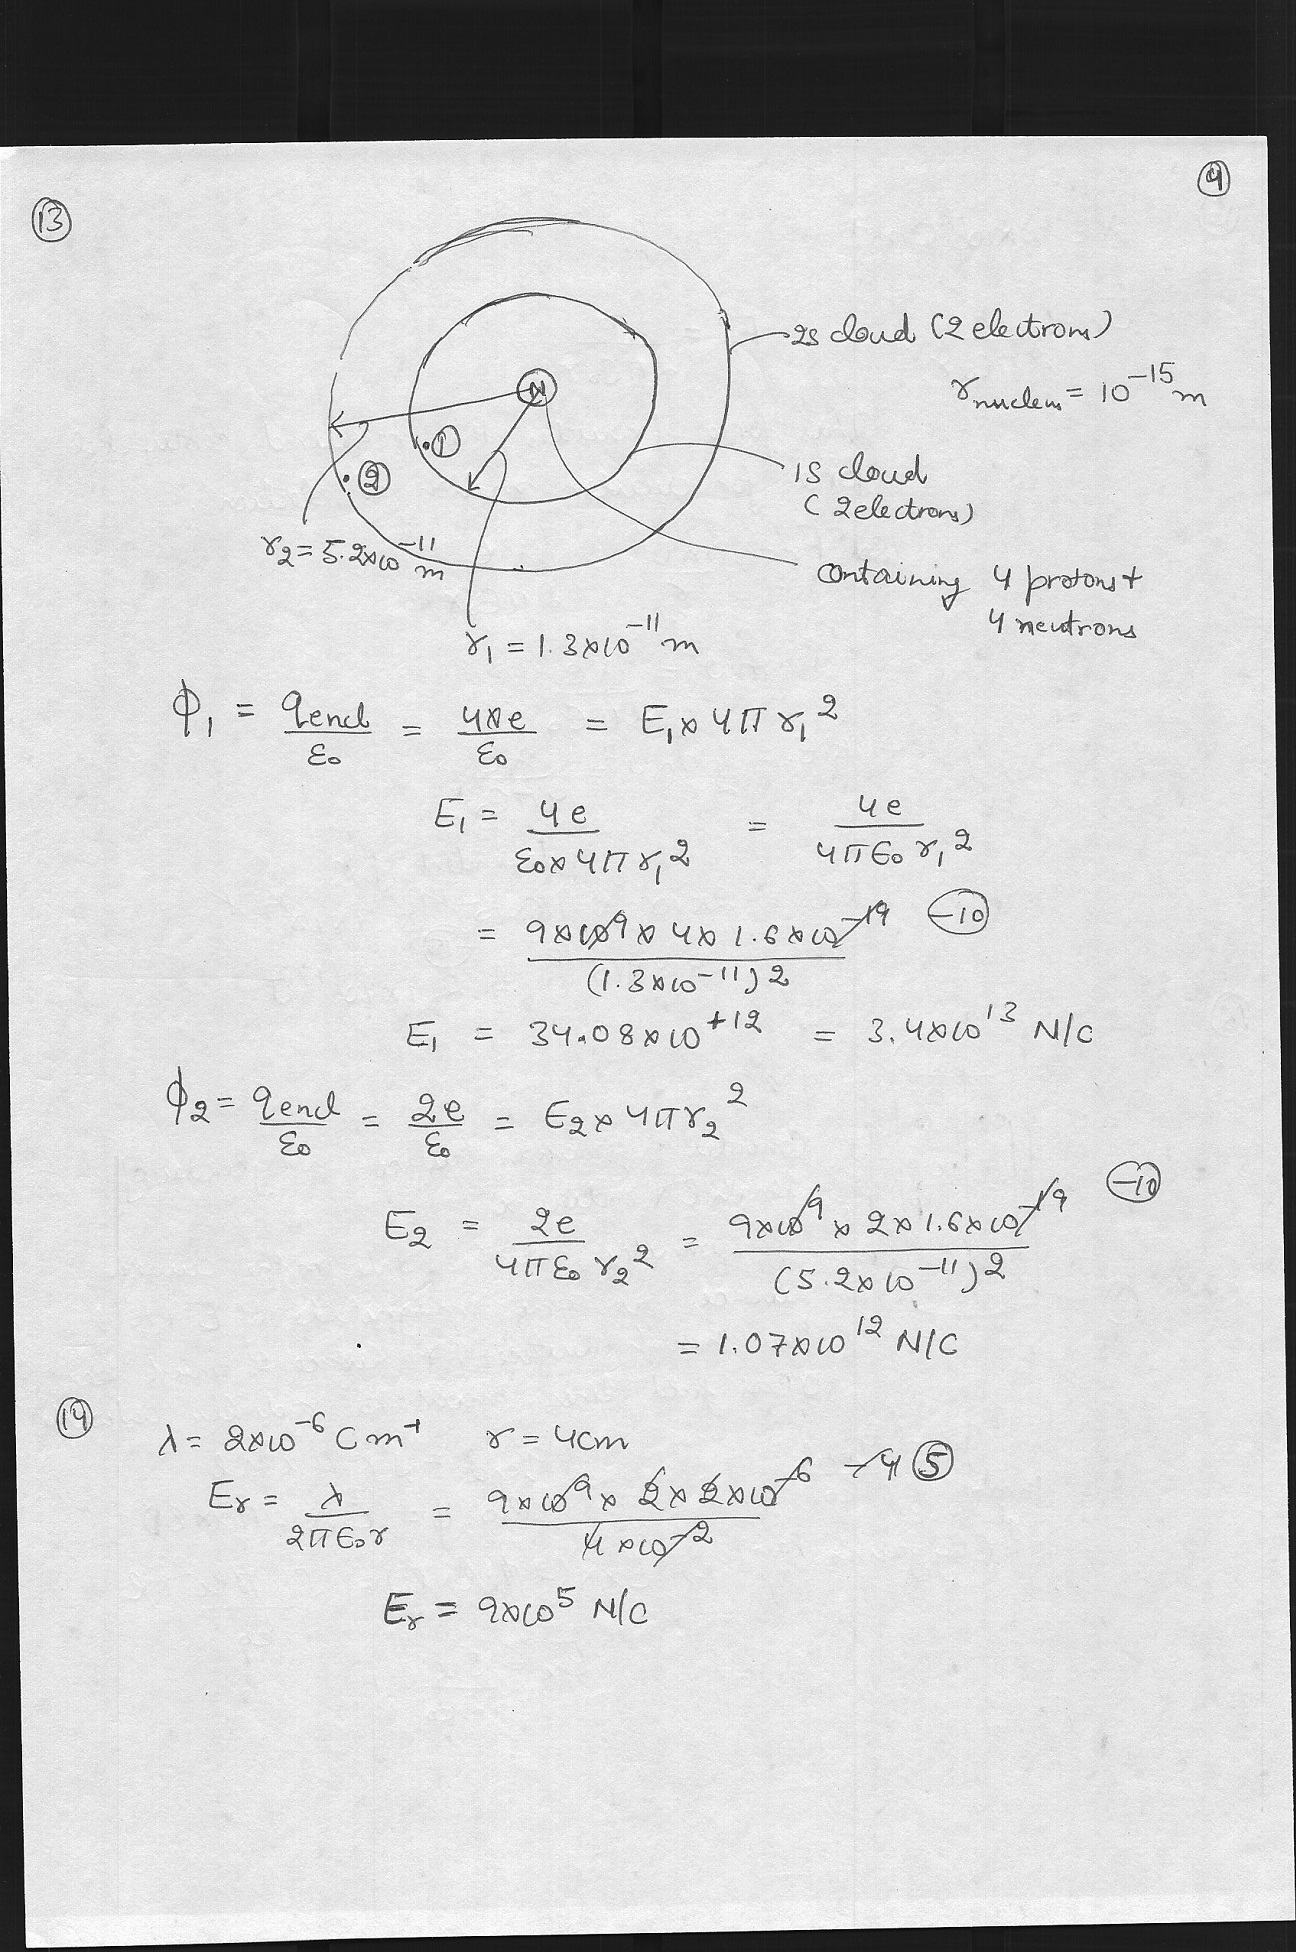 ④
⑬
2s cloud (2 electrons)
r_nucleus = 10⁻¹⁵ m
N
①
②
1S cloud
(2 electrons)
r₂ = 5.2×10⁻¹¹ m
containing 4 protons +
4 neutrons
r₁ = 1.3×10⁻¹¹ m
ϕ₁ = q_encl/ε₀ = 4×e/ε₀ = E₁ × 4π r₁²
E₁ = 4e/(ε₀×4π r₁²) = 4e/(4πε₀ r₁²)
= 9×10⁹ × 4 × 1.6×10⁻¹⁹ / (1.3×10⁻¹¹)² (-10)
E₁ = 34.08×10⁺¹² = 3.4×10¹³ N/C
ϕ₂ = q_encl/ε₀ = 2e/ε₀ = E₂ × 4πr₂²
E₂ = 2e/(4πε₀ r₂²) = 9×10⁹ × 2 × 1.6×10⁻¹⁹ / (5.2×10⁻¹¹)² (-10)
= 1.07×10¹² N/C
⑭
λ = 2×10⁻⁶ C m⁻¹ r = 4cm
E_r = λ/(2πε₀r) = 9×10⁹ × 2 × 2×10⁻⁶ / 4×10⁻² -4 ⑤
E_r = 9×10⁵ N/C